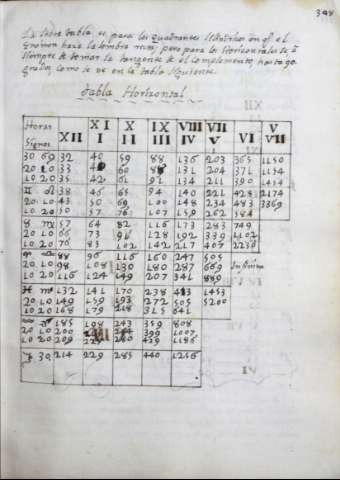 348
La sobre tabla es para los quadrantes
Gnomon haze la sombra recta; pero para los Horizontales se ā
siempre de tomar la tangente de el complemento, hasta 90
grados como se ve en la tabla siguiente.
Tabla Horizontal
Horas XII XI I X II IX III VIII IV VII V VI V VII
Signos
30 69 32 40 59 88 136 203 365 1150
20 10 33 60 131 204 371 1154
10 20 35 42 61 91 134 211 390 1454
38 46 65 94 140 221 428 2174
20 10 43 50 69 100 148 234 483 3369
10 20 50 57 76 107 159 262 584
57 64 82 116 173 283 749
20 10 66 73 91 128 192 339 1102
10 20 76 83 102 142 217 407 2230
88 96 116 160 247 505
20 10 98 108 130 180 287 669
10 20 116 124 149 207 341 889
132 141 170 238 413 1453
20 10 149 159 193 272 505 5200
10 20 168 179 218 315 641
185 198 243 359 808
20 10 200 399 1007
10 20 209 429 1186
30 214 229 285 440 1256